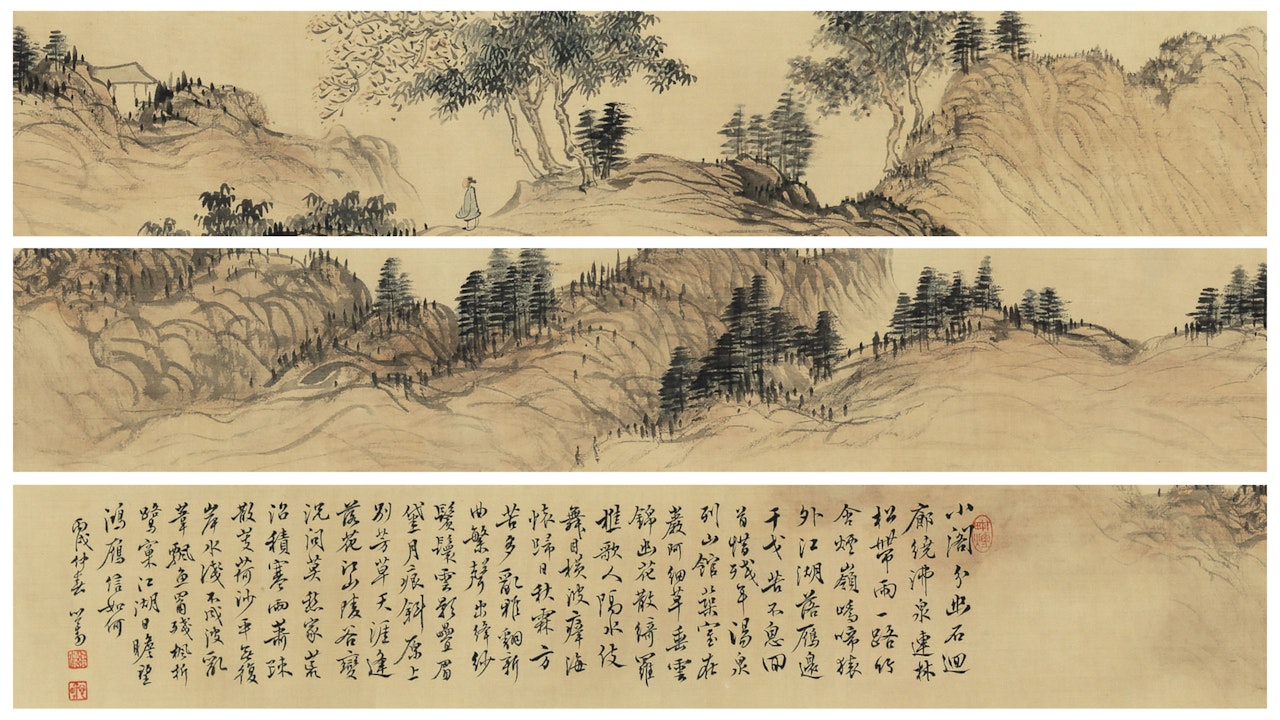 小閣分幽石迴
廊繞沸泉連林
松帶雨一路竹
含煙嶺嶠啼猿
外江湖落鴈邊
干戈苦不息回
首惜殘年湯泉
列山館築室在
巖阿細草垂雲
錦幽花散綺羅
樵歌人隔水伎
舞目橫波瘴海
懷歸日秋霖方
苦多亂雅翻新
曲繁聲出絳紗
鬢鬟雲影疊眉
黛月痕斜原上
別芳草天涯逢
落花江山陵谷變
況問莫愁家荒
沼積寒雨蕭疎
散芰荷沙平無復
岸水淺不成波亂
葦飄罥殘楓折
鷺窠江湖日瞻望
鴻鴈信如何
丙戌仲春 心畬